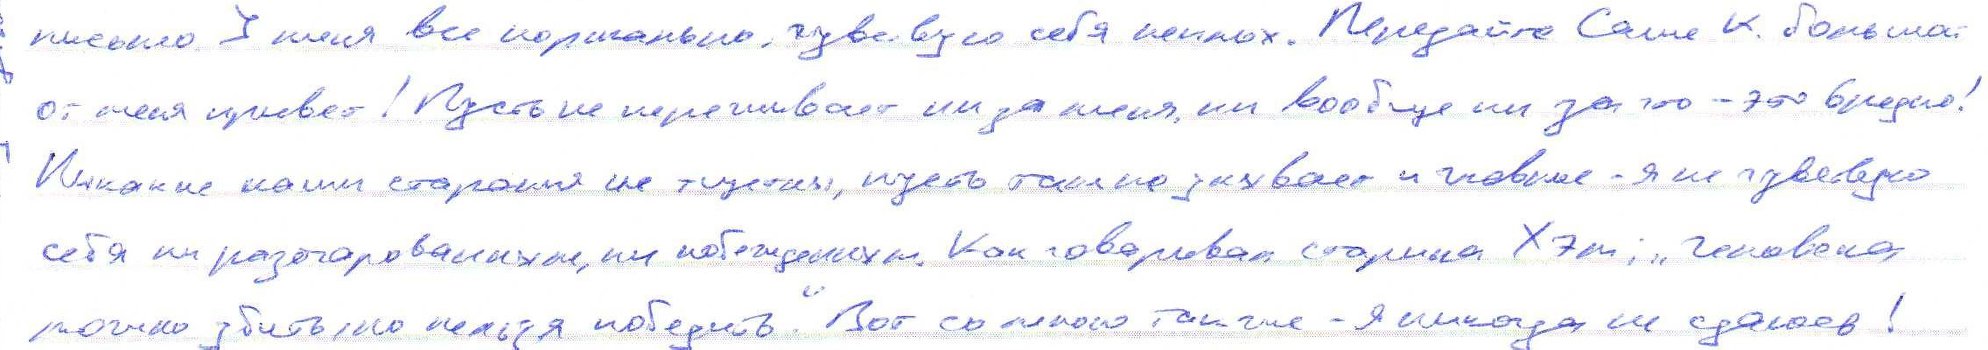 письмо. У меня все нормально, чувствую себя неплох. Передайте Саше К. большой
от меня привет! Пусть не переживает ни за меня, ни вообще ни за что - это вредно!
Никакие наши старания не тщетны, пусть так не унывает и главное - я не чувствую
себя ни разочарованным, ни побежденным. Как говаривал старина Хэм: „Человека
можно убить, но нельзя победить.“ Вот со мною так же - я никогда не сдаюсь!